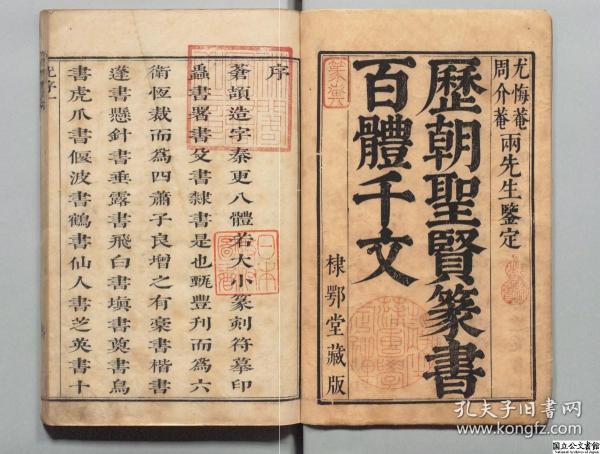 尤悔菴
周介菴
兩先生鑒定
歷朝聖賢篆書
百體千文
棣鄂堂藏版
序
蒼頡造字秦更八體若大小篆刻符摹印
蟲書署書殳書隸書是也甄豐刋而為六
衛恆裁而為四蕭子良增之有稾書楷書
蓬書懸針書垂露書飛白書塡書奠書鳥
書虎爪書偃波書鶴書仙人書芝英書十
日本
孔夫子旧书网
www.kongfz.com
国立公文書館
National Archives of Japan